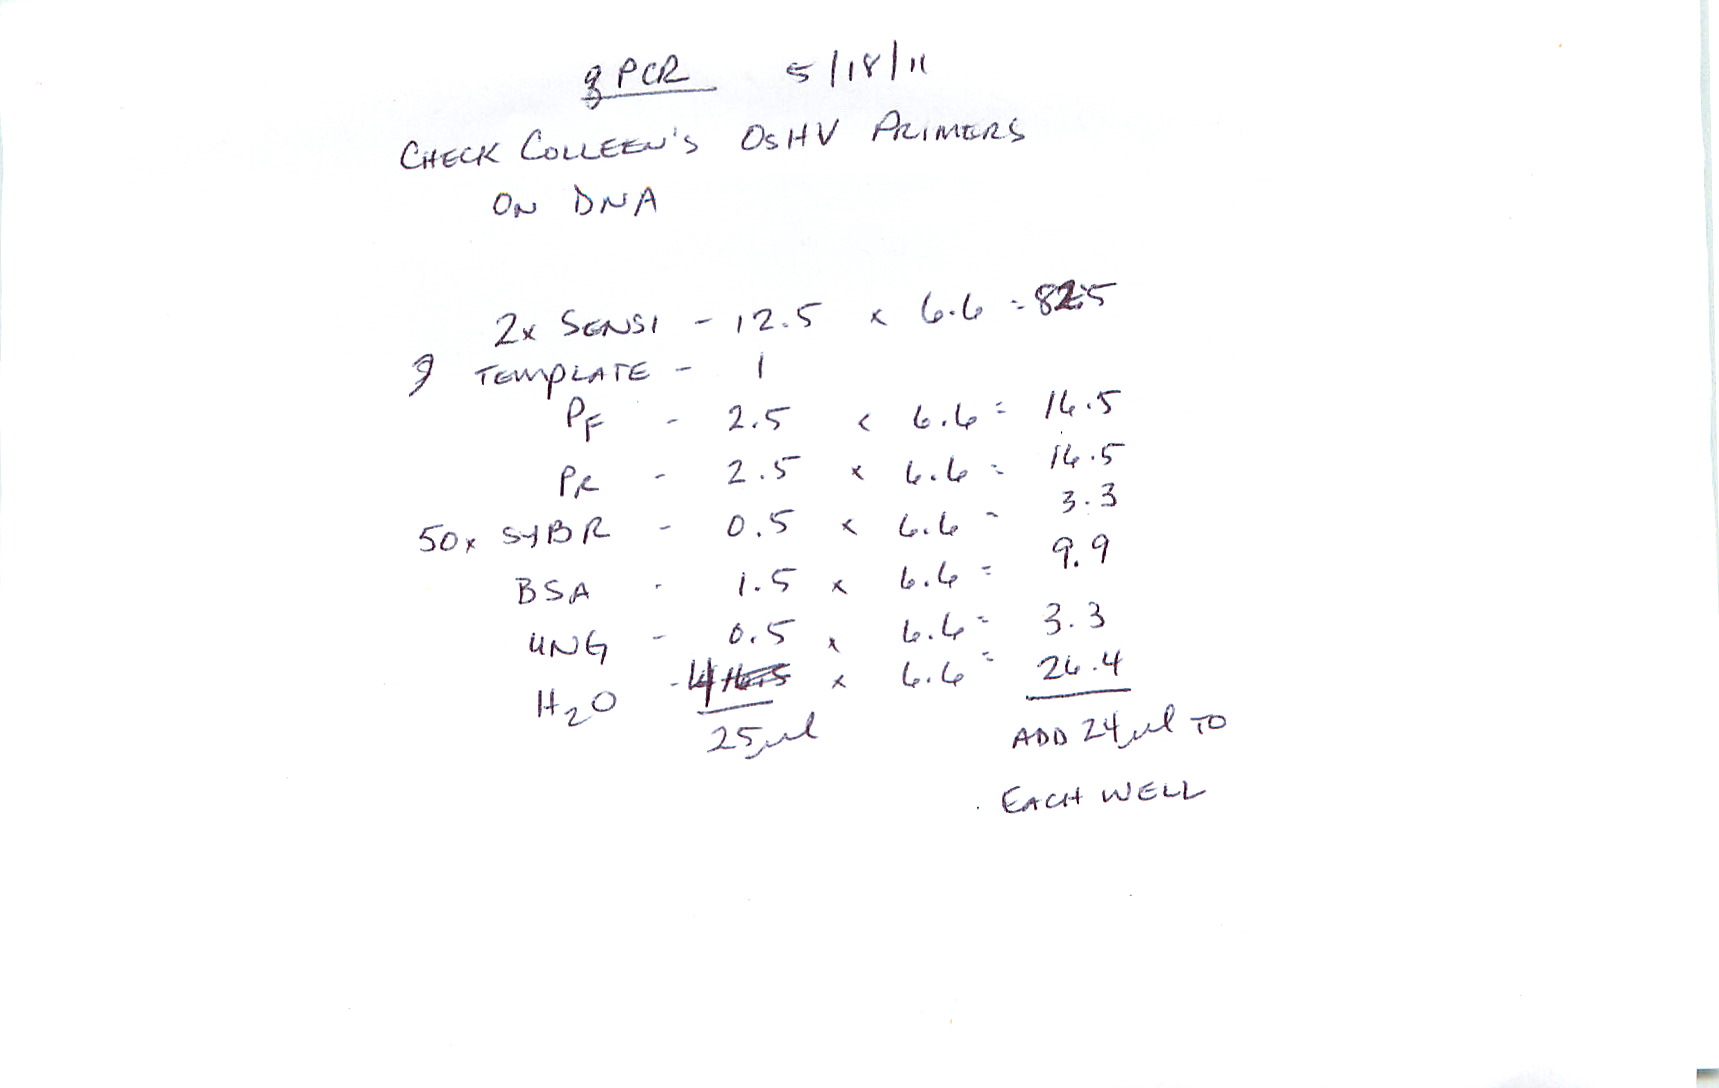 qPCR 5/18/11
CHECK COLLEEN'S OSHV PRIMERS
ON DNA
2x SENSI - 12.5 x 6.6 = 82.5
TEMPLATE - 1
PF - 2.5 x 6.6 = 16.5
PR - 2.5 x 6.6 = 16.5
50x SYBR - 0.5 x 6.6 = 3.3
BSA - 1.5 x 6.6 = 9.9
UNG - 0.5 x 6.6 = 3.3
H2O - 4 x 6.6 = 26.4
25µl ADD 24µl TO
EACH WELL